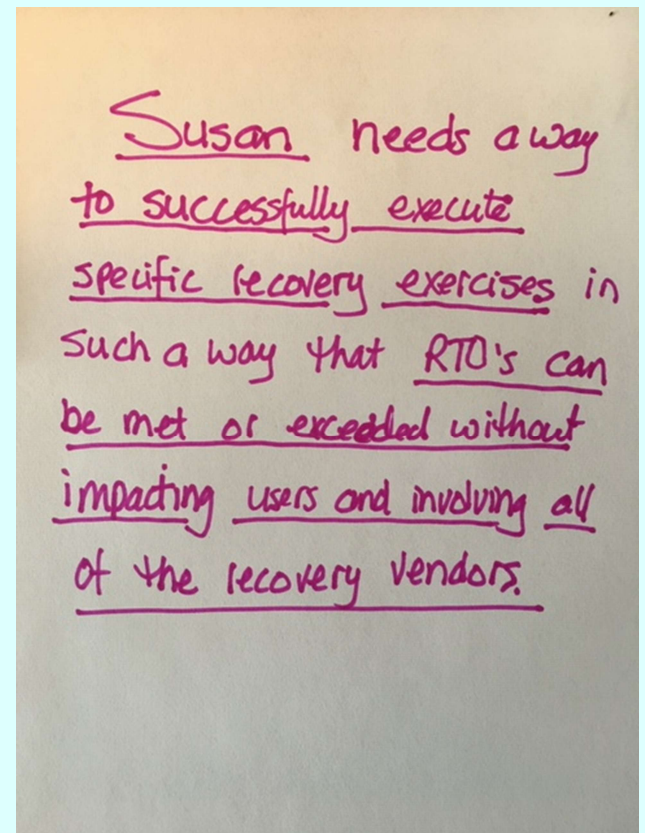 Susan needs a way
to successfully execute
specific recovery exercises in
such a way that RTO's can
be met or exceeded without
impacting users and involving all
of the recovery vendors.